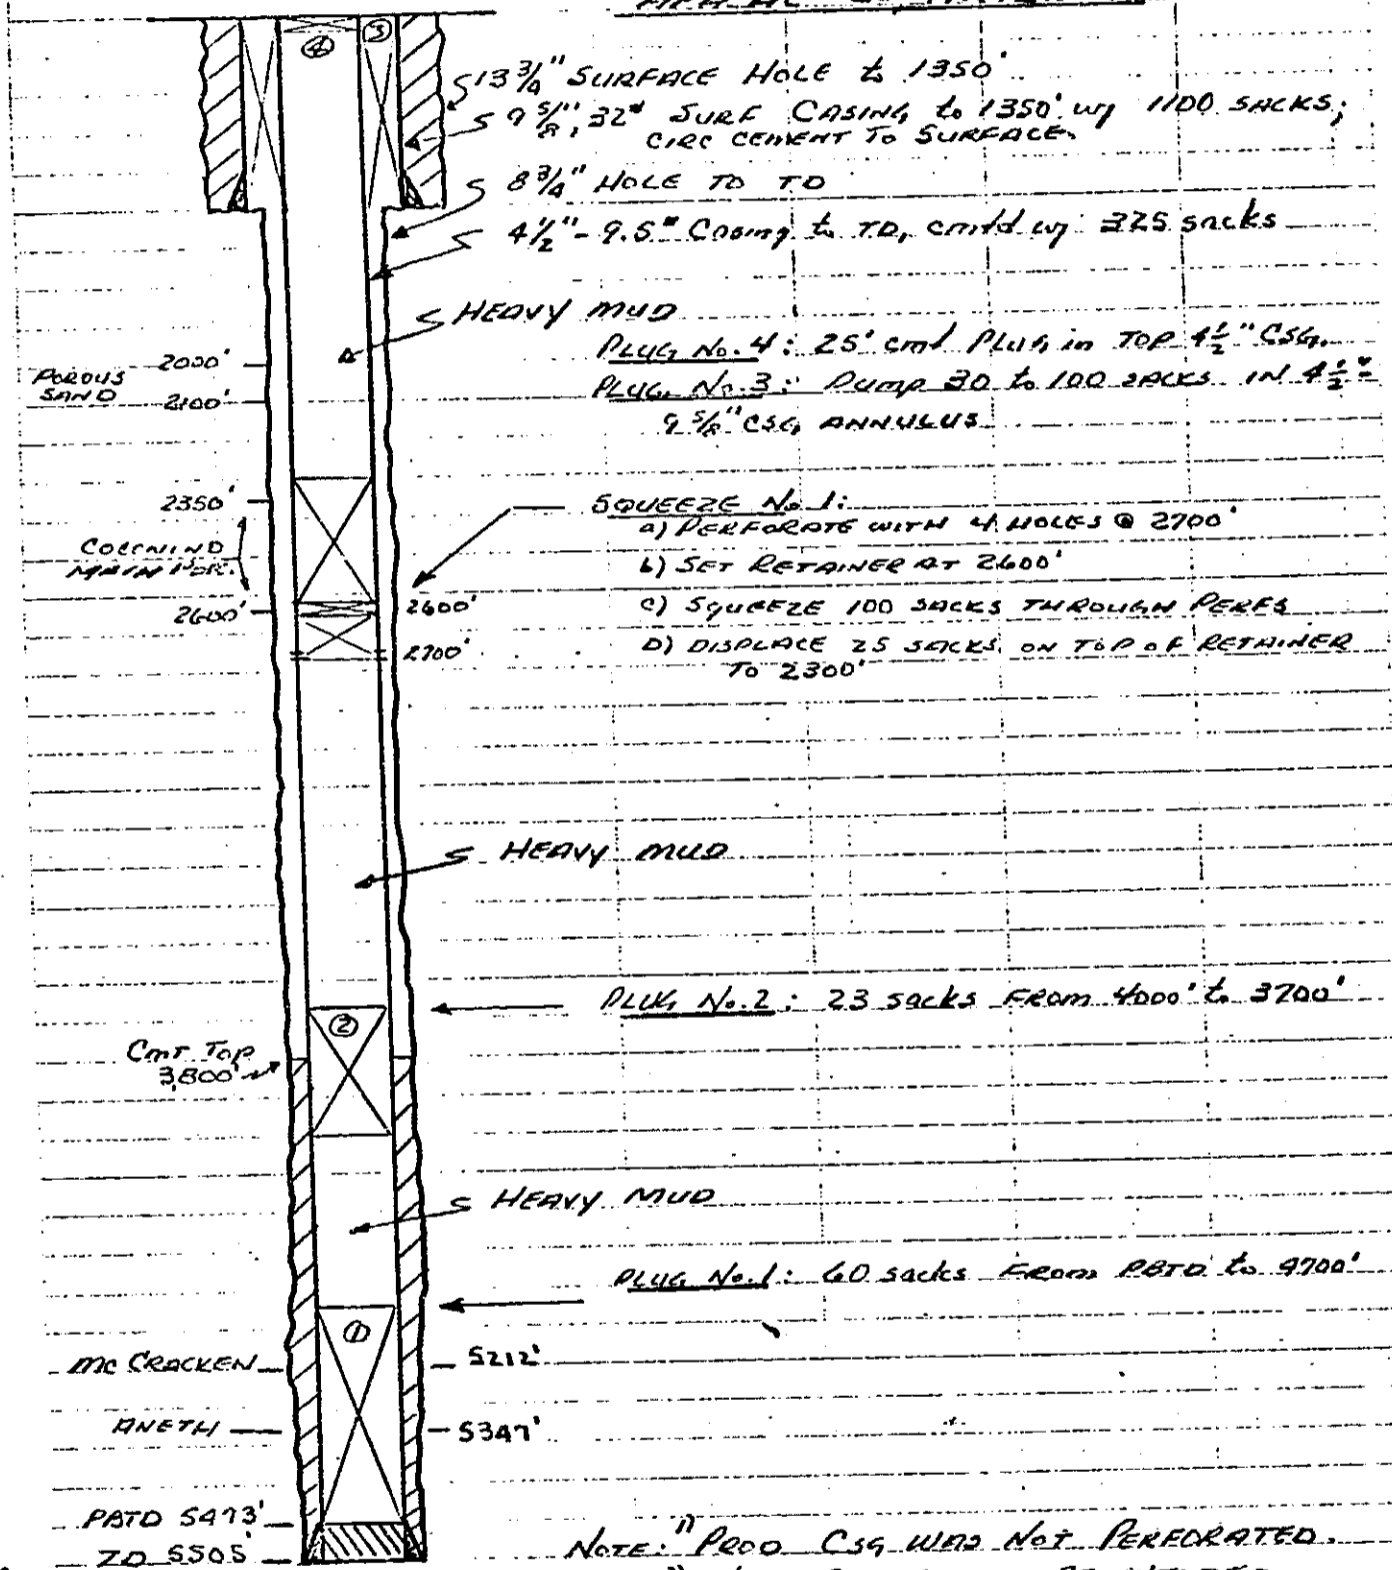 ④ ③
13 3/4" SURFACE HOLE to 1350'
9 5/8", 32# SURF CASING to 1350' w/ 1100 SACKS;
CIRC CEMENT TO SURFACE.
8 3/4" HOLE TO TD
4 1/2" - 9.5# Casing to TD, cmtd w/ 325 sacks
HEAVY MUD
PLUG No. 4: 25' cmt PLUG in TOP 4 1/2" CSG.
2000'
POROUS
SAND
2100'
PLUG No. 3: DUMP 30 to 100 SACKS IN 4 1/2" -
9 5/8" CSG ANNULUS
2350'
SQUEEZE No. 1:
a) PERFORATE WITH 4 HOLES @ 2700'
COCONINO
MAIN
b) SET RETAINER AT 2600'
2600'
2600'
c) SQUEEZE 100 SACKS THROUGH PERFS
2700'
D) DISPLACE 25 SACKS ON TOP OF RETAINER
TO 2300'
HEAVY MUD
PLUG No. 2: 23 sacks FROM 4000' to 3700'
②
CMT TOP
3,800'
HEAVY MUD
PLUG No. 1: 60 sacks FROM PBTD to 4700'
①
MC CRACKEN
5212'
ANETH
5347'
PBTD 5473'
TD 5505'
NOTE: 1) PROD CSG WAS NOT PERFORATED.